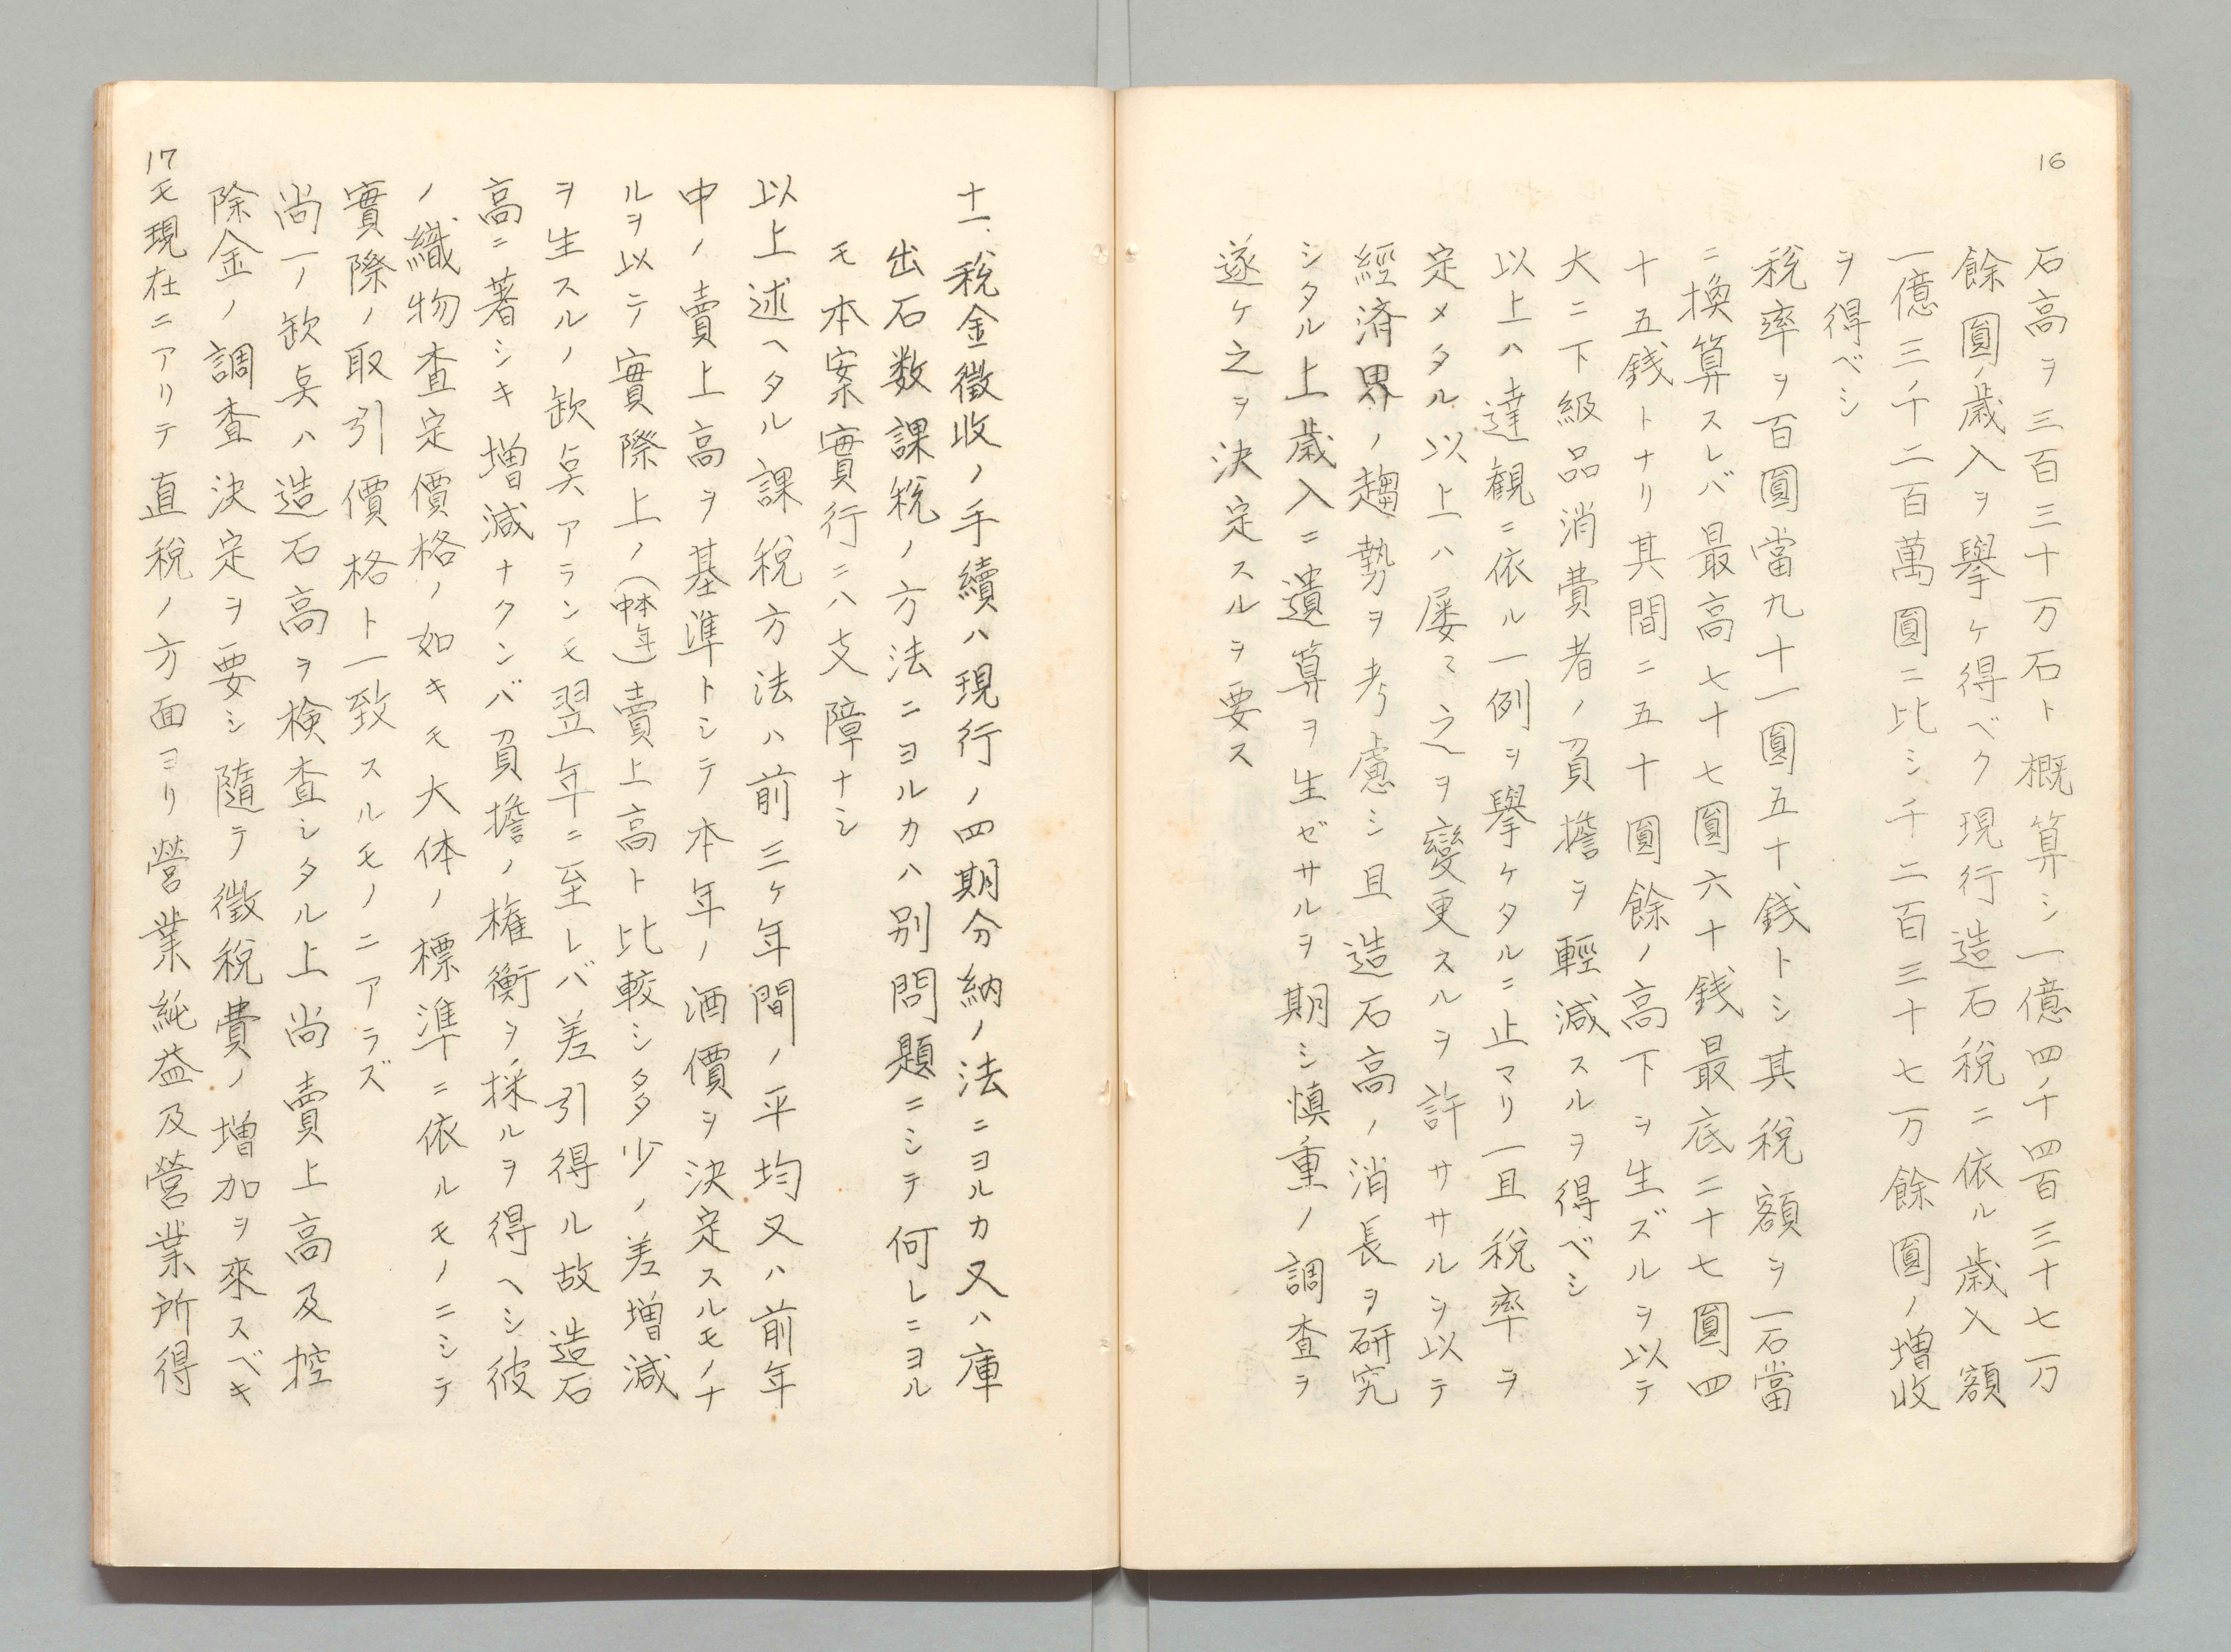 16
石高ヲ三百三十万石ト概算シ一億四千四百三十七万
餘圓ノ歳入ヲ擧ケ得ベク現行造石税ニ依ル歳入額
一億三千二百萬圓ニ比シ千二百三十七万餘圓ノ増收
ヲ得ベシ
税率ヲ百圓當九十一圓五十銭トシ其税額ヲ一石當
ニ換算スレバ最高七十七圓六十銭最底二十七圓四
十五銭トナリ其間ニ五十圓餘ノ高下ヲ生ズルヲ以テ
大ニ下級品消費者ノ負擔ヲ輕減スルヲ得ベシ
以上ハ達観ニ依ル一例ヲ擧ケタルニ止マリ一且税率ヲ
定メタル以上ハ屡々之ヲ變更スルヲ許ササルヲ以テ
經済界ノ趨勢ヲ考慮シ且造石高ノ消長ヲ研究
シタル上歳入ニ遺算ヲ生ゼサルヲ期シ慎重ノ調査ヲ
遂ケ之ヲ決定スルヲ要ス
十一、税金徴收ノ手續ハ現行ノ四期分納ノ法ニヨルカ又ハ庫
出石数課税ノ方法ニヨルカハ別問題ニシテ何レニヨル
モ本案實行ニハ支障ナシ
以上述ヘタル課税方法ハ前三ヶ年間ノ平均又ハ前年
中ノ賣上高ヲ基準トシテ本年ノ酒價ヲ決定スルモノナ
ルヲ以テ實際上ノ(本年中)賣上高ト比較シ多少ノ差増減
ヲ生スルノ欠点アランモ翌年ニ至レバ差引得ル故造石
高ニ著シキ増減ナクンバ負擔ノ権衡ヲ採ルヲ得ヘシ彼
ノ織物査定價格ノ如キモ大体ノ標準ニ依ルモノニシテ
實際ノ取引價格ト一致スルモノニアラズ
尚一ノ欠点ハ造石高ヲ検査シタル上尚賣上高及控
除金ノ調査決定ヲ要シ隨テ徴税費ノ増加ヲ來スベキ
17
モ現在ニアリテ直税ノ方面ヨリ營業純益及營業所得